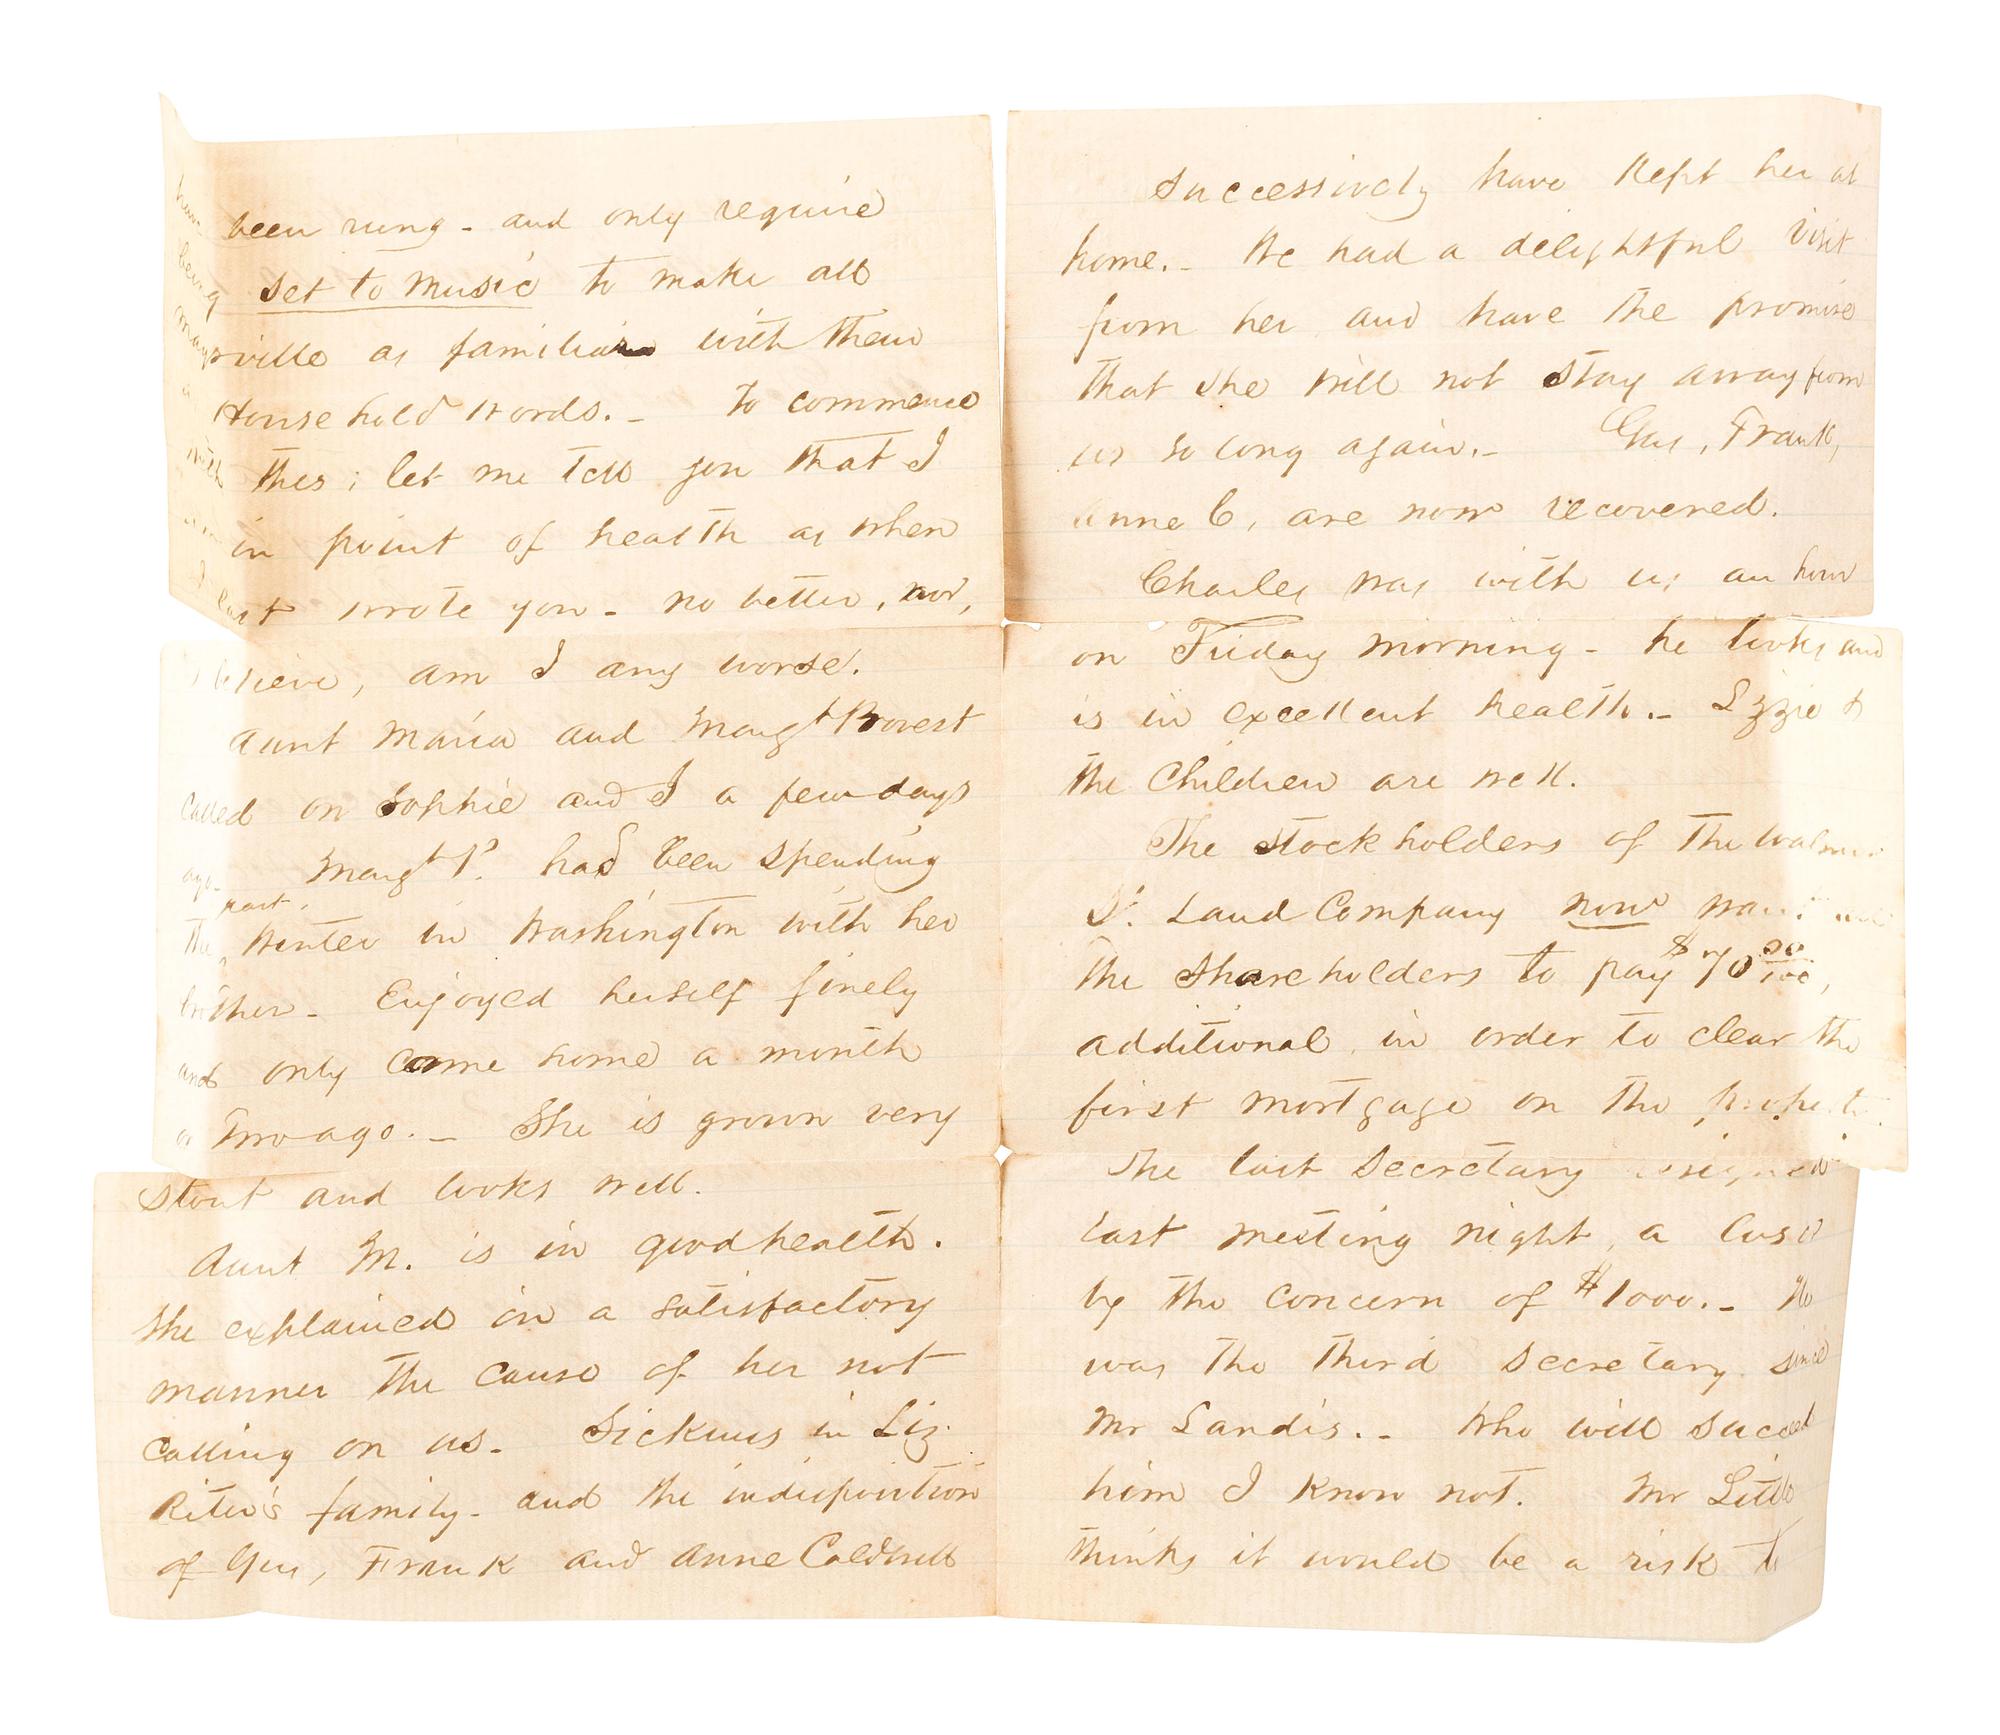 been rung - and only require
set to music to make all
ville as familiar with them
House hold words. - To commence
this; let me tell you that I
in point of health as when
last wrote you - no better, nor,
believe, am I any worse.
Aunt Maria and Margt Provest
called on Sophie and I a few days
ago - Margt P. had been spending
past,
the winter in Washington with her
brother - Enjoyed herself finely
and only came home a month
or two ago. - She is grown very
stout and looks well.
Aunt M. is in good health.
She explained in a satisfactory
manner the cause of her not
calling on us - Sickness in Liz.
Riter's family - and the indisposition
of Gus, Frank and Anne Caldwell
have
being
mays
a
with
I
successively have kept her at
home. - We had a delightful visit
from her and have the promise
that she will not stay away from
us so long again. - Gus, Frank,
Anne C, are now recovered.
Charles was with us an hour
on Friday morning - he looks and
is in excellent health. - Lizzie &
the Children are well.
The stock holders of the Walnut
St. Land Company now want
the Share holders to pay $70 00/100,
additional in order to clear the
first mortgage on the property.
The last Secretary resigned
last meeting night, a loss
by the concern of $1000. - He
was the third Secretary since
Mr Landis. - Who will succeed
him I know not. Mr Little
thinks it would be a risk to